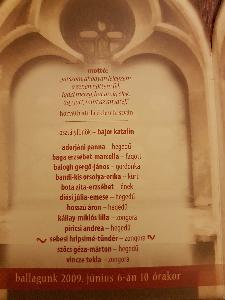 mottó:
osztályfőnök – bajor katalin
adorjáni panna – hegedű
baga erzsébet marcella – fagott
balogh gergő-jános – gordonka
bandi-kis orsolya-erika – kürt
bota zita-erzsébet – ének
diósi júlia-emese – hegedű
hosszú áron – hegedű
kállay miklós lilla – zongora
piricsi andrea – hegedű
sebesi hripsimé-tündér – zongora
szőcs géza-márton – hegedű
vincze tekla – zongora
ballagunk 2009. június 6-án 10 órakor